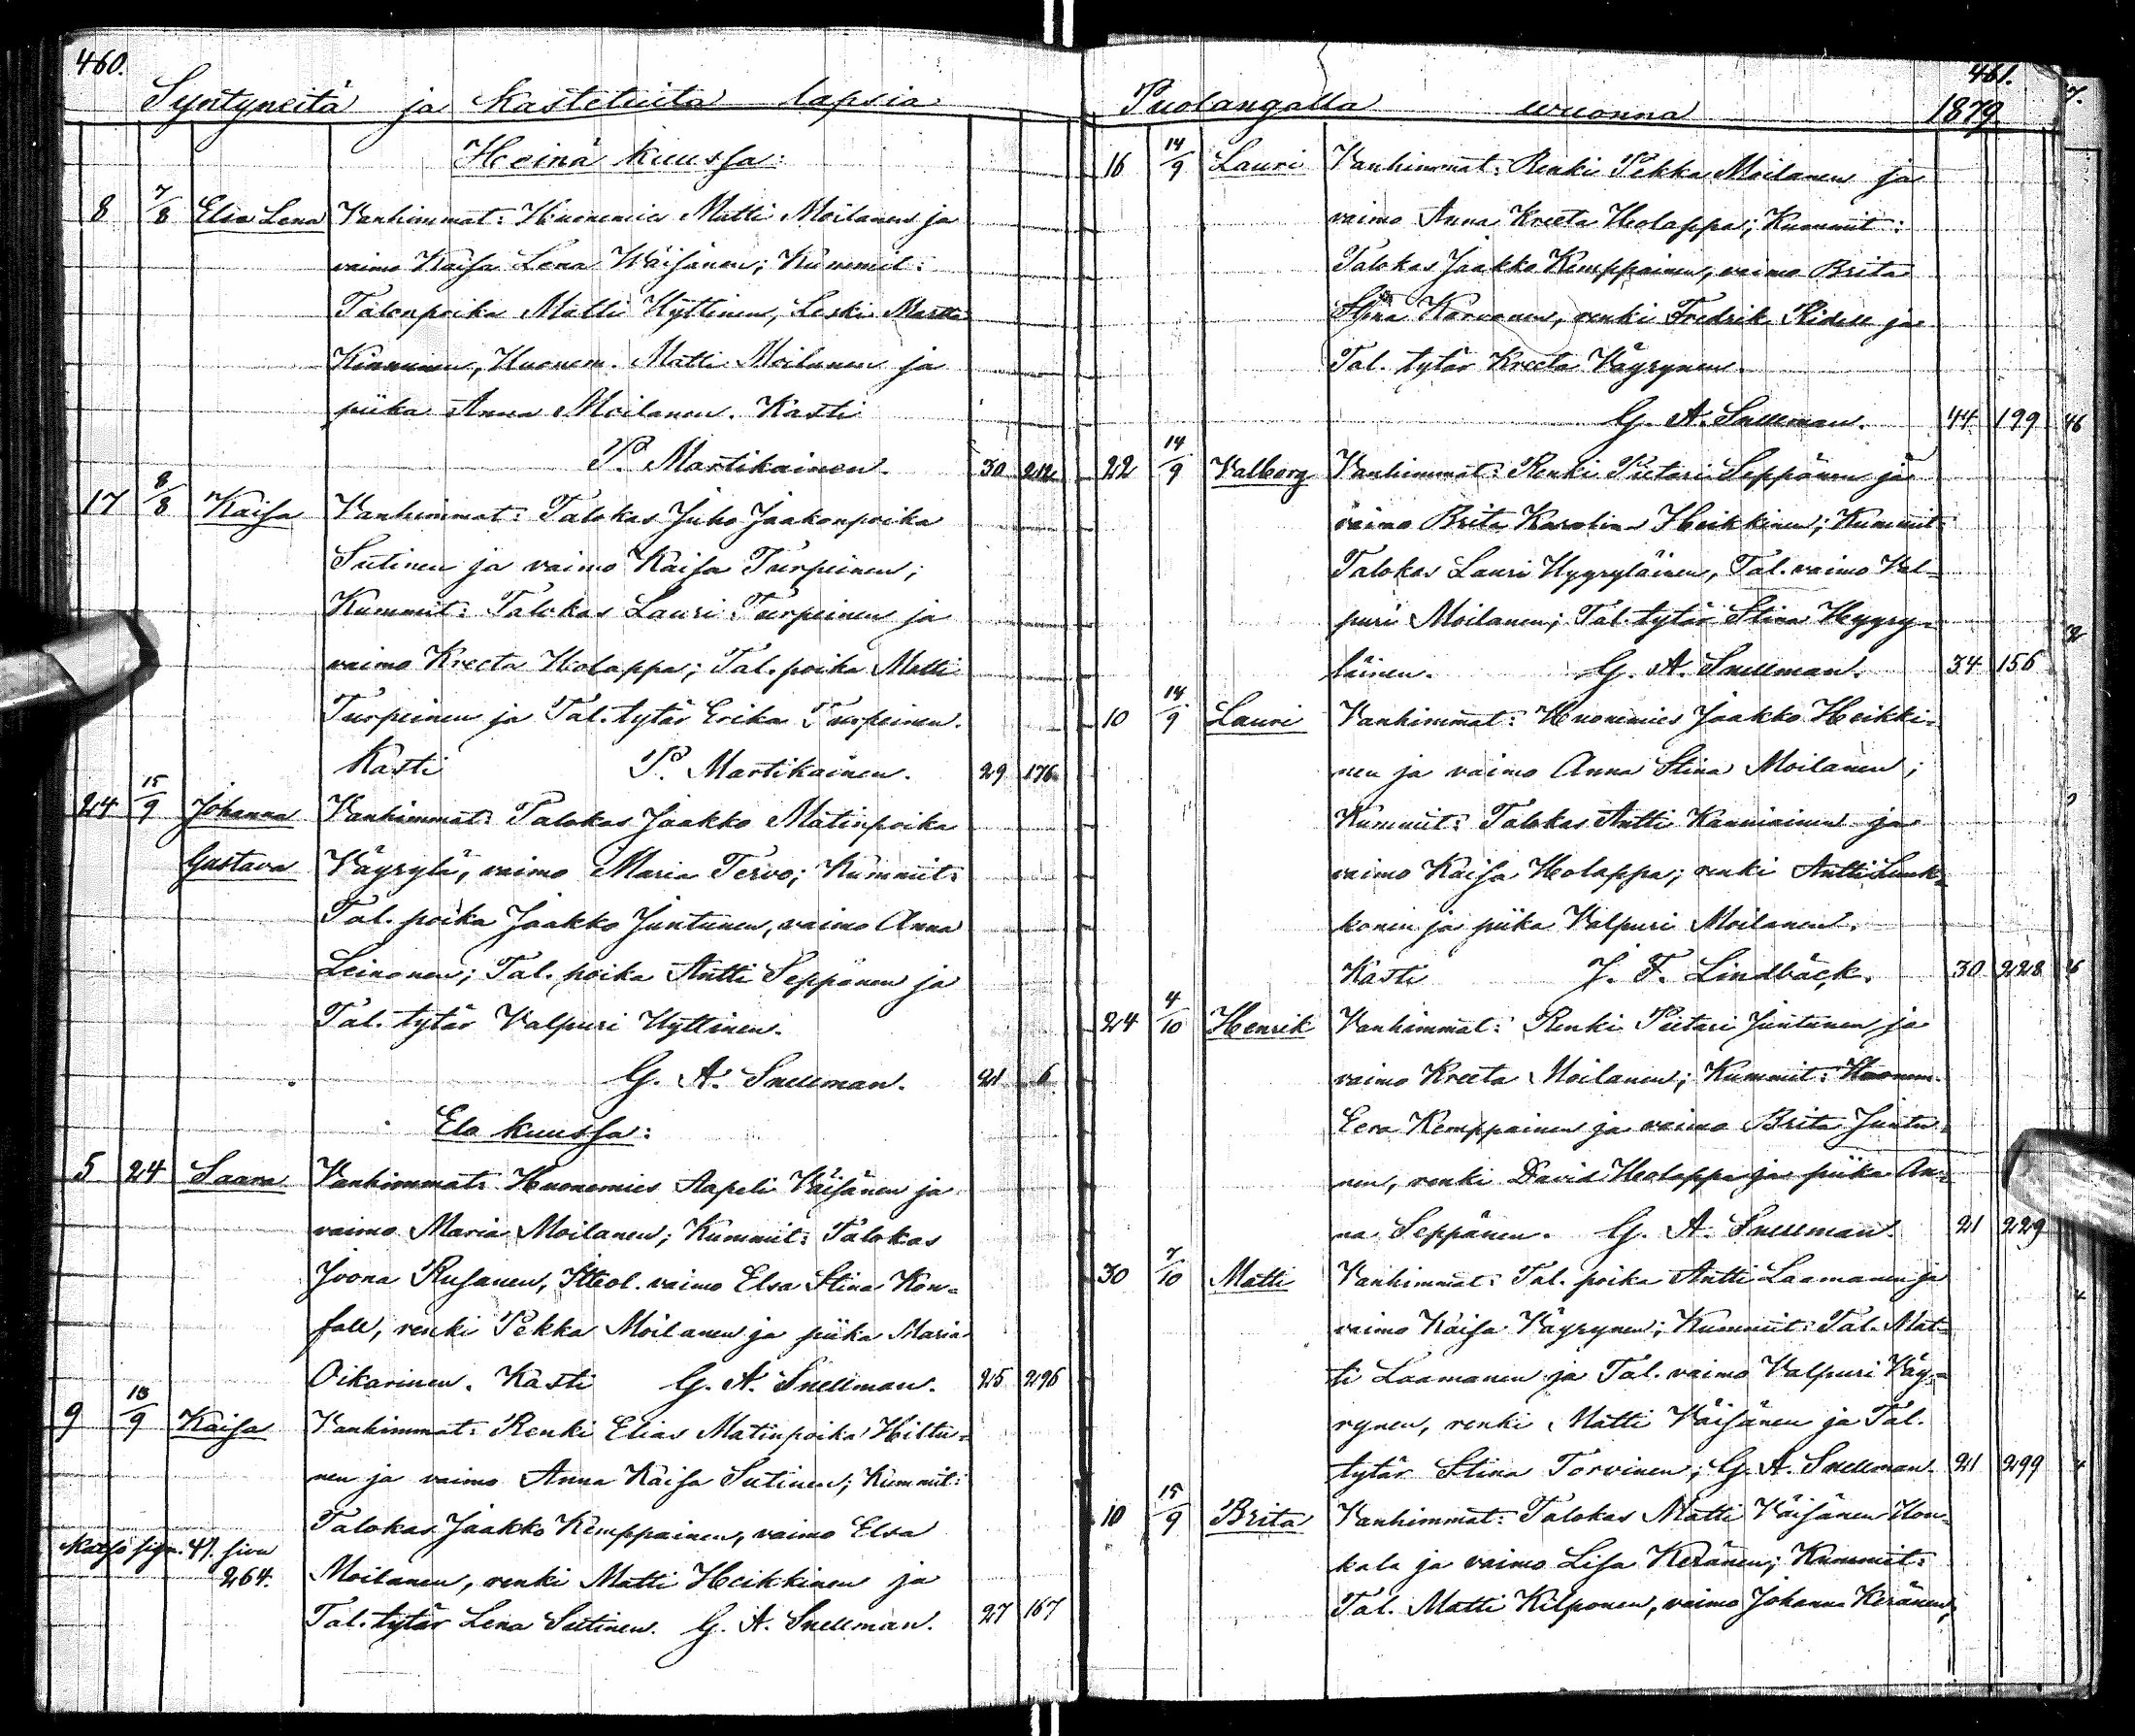 460.
Syntyneitä ja kastetuita lapsia
Heinä kuussa:
8 7/8 Elsa Lena Vanhimmat: Huonemies Matti Moilanen ja
vaimo Kaisa Lena Wäisänen; Kummit:
Talonpoika Matti Hyttinen, Leski Martta
Kinnunen, Huonem. Matti Moilanen ja
piika Anna Moilanen. Kasti
P. Martikainen. 30 212
17 8/8 Kaisa Vanhimmat: Talokas Juho Jaakonpoika
Sutinen ja vaimo Kaisa Turpeinen;
Kummit: Talokas Lauri Turpeinen ja
vaimo Kreeta Holappa; Tal. poika Matti
Turpeinen ja Tal. tytär Erika Turpeinen.
Kasti P. Martikainen. 29 176
24 15/9 Johanna Vanhimmat: Talokas Jaakko Matinpoika
Gustava Väyrylä, vaimo Maria Tervo; Kummit:
Tal. poika Jaakko Juntunen, vaimo Anna
Leinonen; Tal. poika Antti Seppänen ja
Tal. tytär Valpuri Hyttinen.
G. A. Snellman. 21 6
Elo kuussa:
5 24 Saara Vanhimmat: Huonemies Aapeli Väisänen ja
vaimo Maria Moilanen; Kummit: Talokas
Joona Rusanen, Itteol. vaimo Elsa Stina Kon-
fall, renki Pekka Moilanen ja piika Maria
Oikarinen. Kasti G. A. Snellman. 25 296
9 18/9 Kaisa Vanhimmat: Renki Elias Matinpoika Hiltu-
nen ja vaimo Anna Kaisa Sutinen; Kummit:
Talokas Jaakko Kemppainen, vaimo Elsa
Katso sign. 41. sivu
264. Moilanen, renki Matti Heikkinen ja
Tal. tytär Lena Sutinen. G. A. Snellman. 27 167
461.
Puolangalla wuonna 1879
16 14/9 Lauri Vanhimmat: Renki Pekka Moilanen ja
vaimo Anna Kreeta Holappa; Kummit:
Talokas Jaakko Kemppainen, vaimo Brita
Stina Karvonen, renki Fredrik Ridell ja
Tal. tytär Kreeta Väyrynen.
G. A. Snellman. 44 199
22 14/9 Valborg Vanhimmat: Renki Pietari Seppänen ja
vaimo Brita Karolina Heikkinen; Kummit:
Talokas Lauri Hyyryläinen, Tal. vaimo Val-
puri Moilanen; Tal. tytär Stina Hyyry-
läinen. G. A. Snellman. 34 156
10 14/9 Lauri Vanhimmat: Huonemies Jaakko Heikki-
nen ja vaimo Anna Stina Moilanen;
Kummit: Talokas Antti Kanniainen ja
vaimo Kaisa Holappa; renki Antti Luuk-
konen ja piika Valpuri Moilanen.
Kasti J. F. Lindbäck. 30 228
24 4/10 Henrik Vanhimmat: Renki Pietari Juntunen ja
vaimo Kreeta Moilanen; Kummit: Huonem.
Eera Kemppainen ja vaimo Brita Juntu-
nen, renki David Holappa ja piika An-
na Seppänen. G. A. Snellman. 21 229
30 7/10 Matti Vanhimmat: Tal. poika Antti Laamanen ja
vaimo Kaisa Väyrynen; Kummit: Tal. Mat-
ti Laamanen ja Tal. vaimo Valpuri Väy-
rynen, renki Matti Väisänen ja Tal.
tytär Stina Torvinen; G. A. Snellman. 21 299
10 15/9 Brita Vanhimmat: Talokas Matti Väisänen Hon-
kala ja vaimo Lisa Keränen; Kummit:
Tal. Matti Kilponen, vaimo Johanna Keränen,